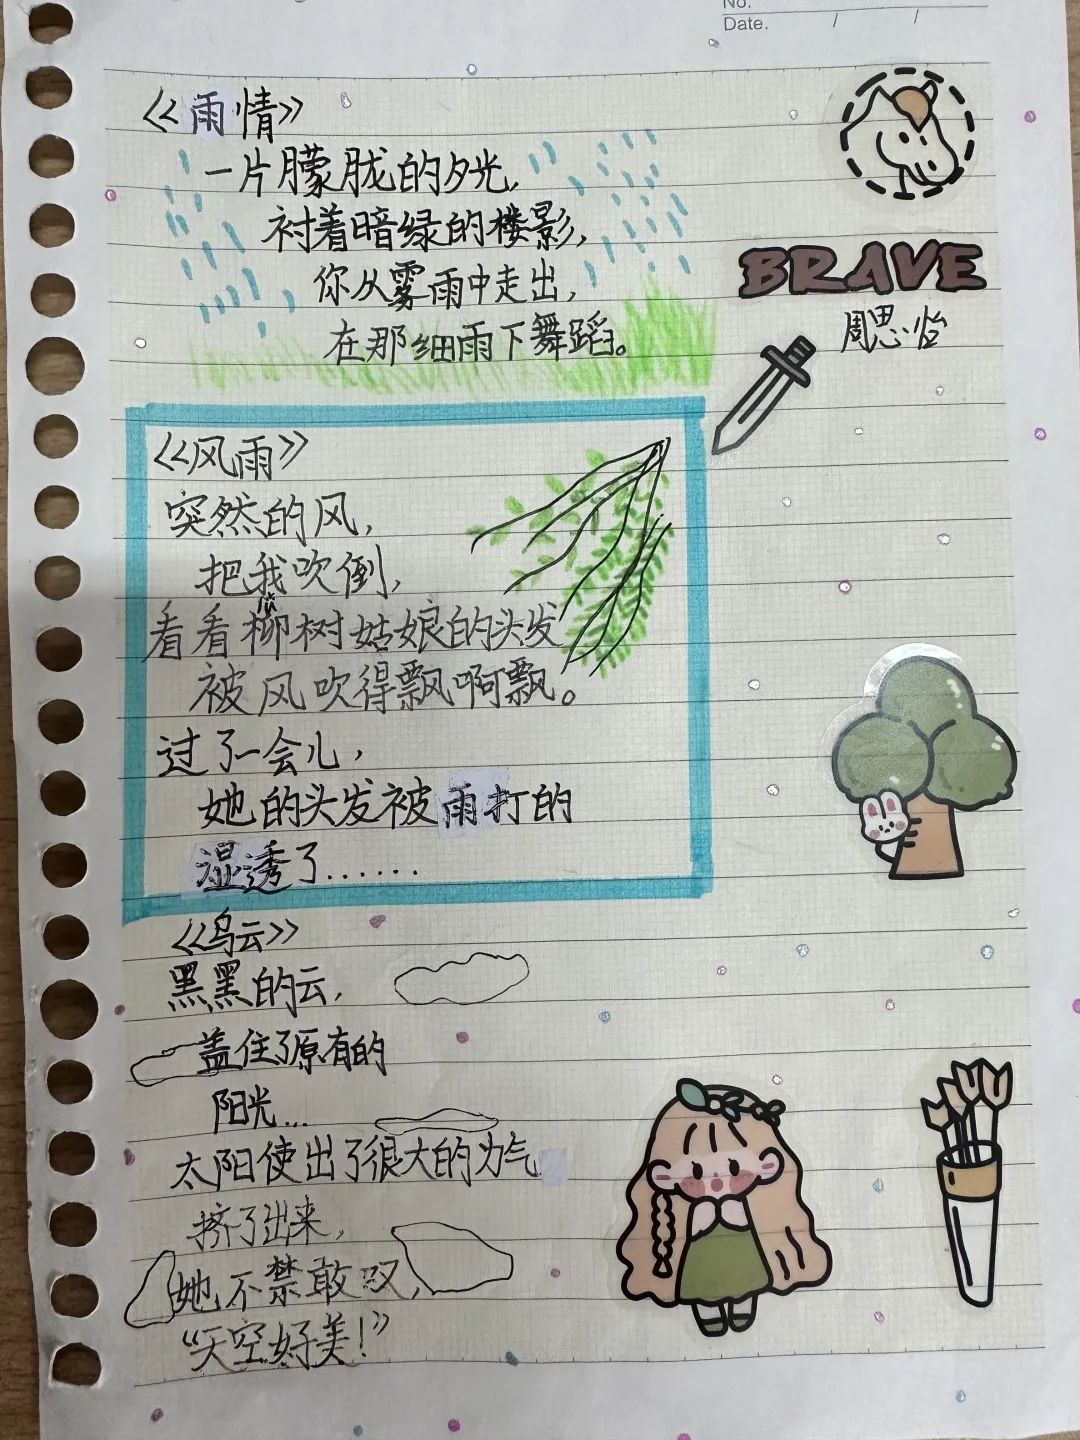 No.
Date. / /
《雨情》
一片朦胧的夕光,
衬着暗绿的楼影,
你从雾雨中走出,
在那细雨下舞蹈。
BRAVE
周思怡
《风雨》
突然的风,
把我吹倒,
看看柳树姑娘的头发
被风吹得飘啊飘。
过了一会儿,
她的头发被雨打的
湿透了......
《乌云》
黑黑的云,
盖住了原有的
阳光...
太阳使出了很大的力气
挤了出来,
她不禁敢叹,
“天空好美!”